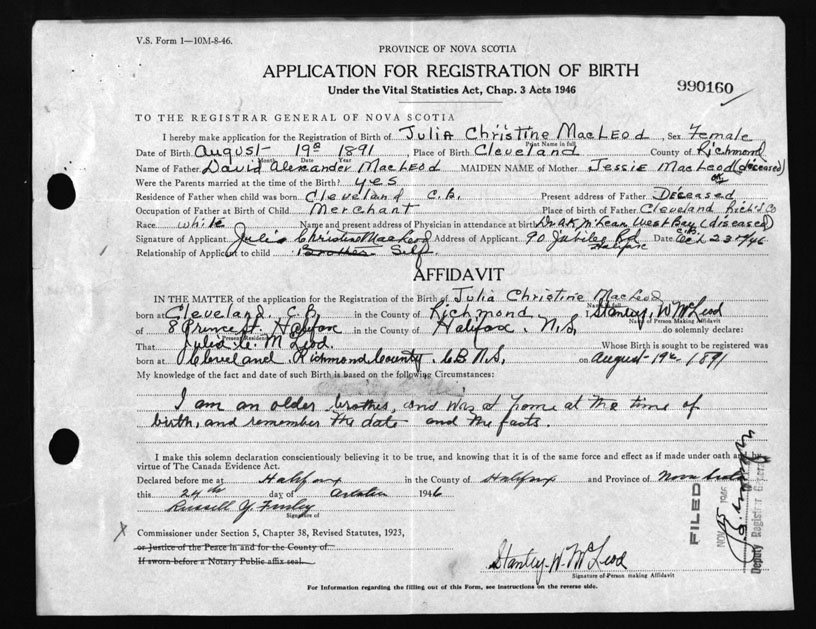 V.S. Form 1—10M-8-46.
PROVINCE OF NOVA SCOTIA
APPLICATION FOR REGISTRATION OF BIRTH
Under the Vital Statistics Act, Chap. 3 Acts 1946
990160
TO THE REGISTRAR GENERAL OF NOVA SCOTIA
I hereby make application for the Registration of Birth of Julia Christine MacLeod, Sex Female
Print Name in full
Date of Birth August 19th 1891, Place of Birth Cleveland County of Richmond
Month Date Year
Name of Father David Alexander MacLeod MAIDEN NAME of Mother Jessie MacLeod (deceased)
Were the Parents married at the time of the Birth? yes
Residence of Father when child was born Cleveland C.B. Present address of Father Deceased
Occupation of Father at Birth of Child Merchant Place of birth of Father Cleveland Rich'd Co
Race white Name and present address of Physician in attendance at birth McLean West Bay C.B. (diseased)
Signature of Applicant Julia Christine MacLeod Address of Applicant 90 Jubilee Rd Halifax Date Oct 23rd/46
Relationship of Applicant to child Brother Self
AFFIDAVIT
IN THE MATTER of the application for the Registration of the Birth of Julia Christine MacLeod
Name in full
born at Cleveland, C.B. in the County of Richmond I Stanley W McLeod
Name of Person Making Affidavit
of 8 Prince St. Halifax in the County of Halifax, N.S, do solemnly declare:
Present Residence
That Julia C. McLeod Whose Birth is sought to be registered was
born at Cleveland, Richmond County, C B N.S, on August 19th 1891
My knowledge of the fact and date of such Birth is based on the following Circumstances:
I am an older brother, and was at home at the time of
birth, and remember the date and the facts.
I make this solemn declaration conscientiously believing it to be true, and knowing that it is of the same force and effect as if made under oath and by
virtue of The Canada Evidence Act.
Declared before me at Halifax in the County of Halifax and Province of Nova Scotia
this 24th day of October 1946
Russell Y. Finley
Signature of
x
Commissioner under Section 5, Chapter 38, Revised Statutes, 1923,
or Justice of the Peace in and for the County of
If sworn before a Notary Public affix seal.
Stanley W McLeod
Signature of Person making Affidavit
For Information regarding the filling out of this Form, see instructions on the reverse side.
FILED
NOV 15 1946
Deputy Registrar General